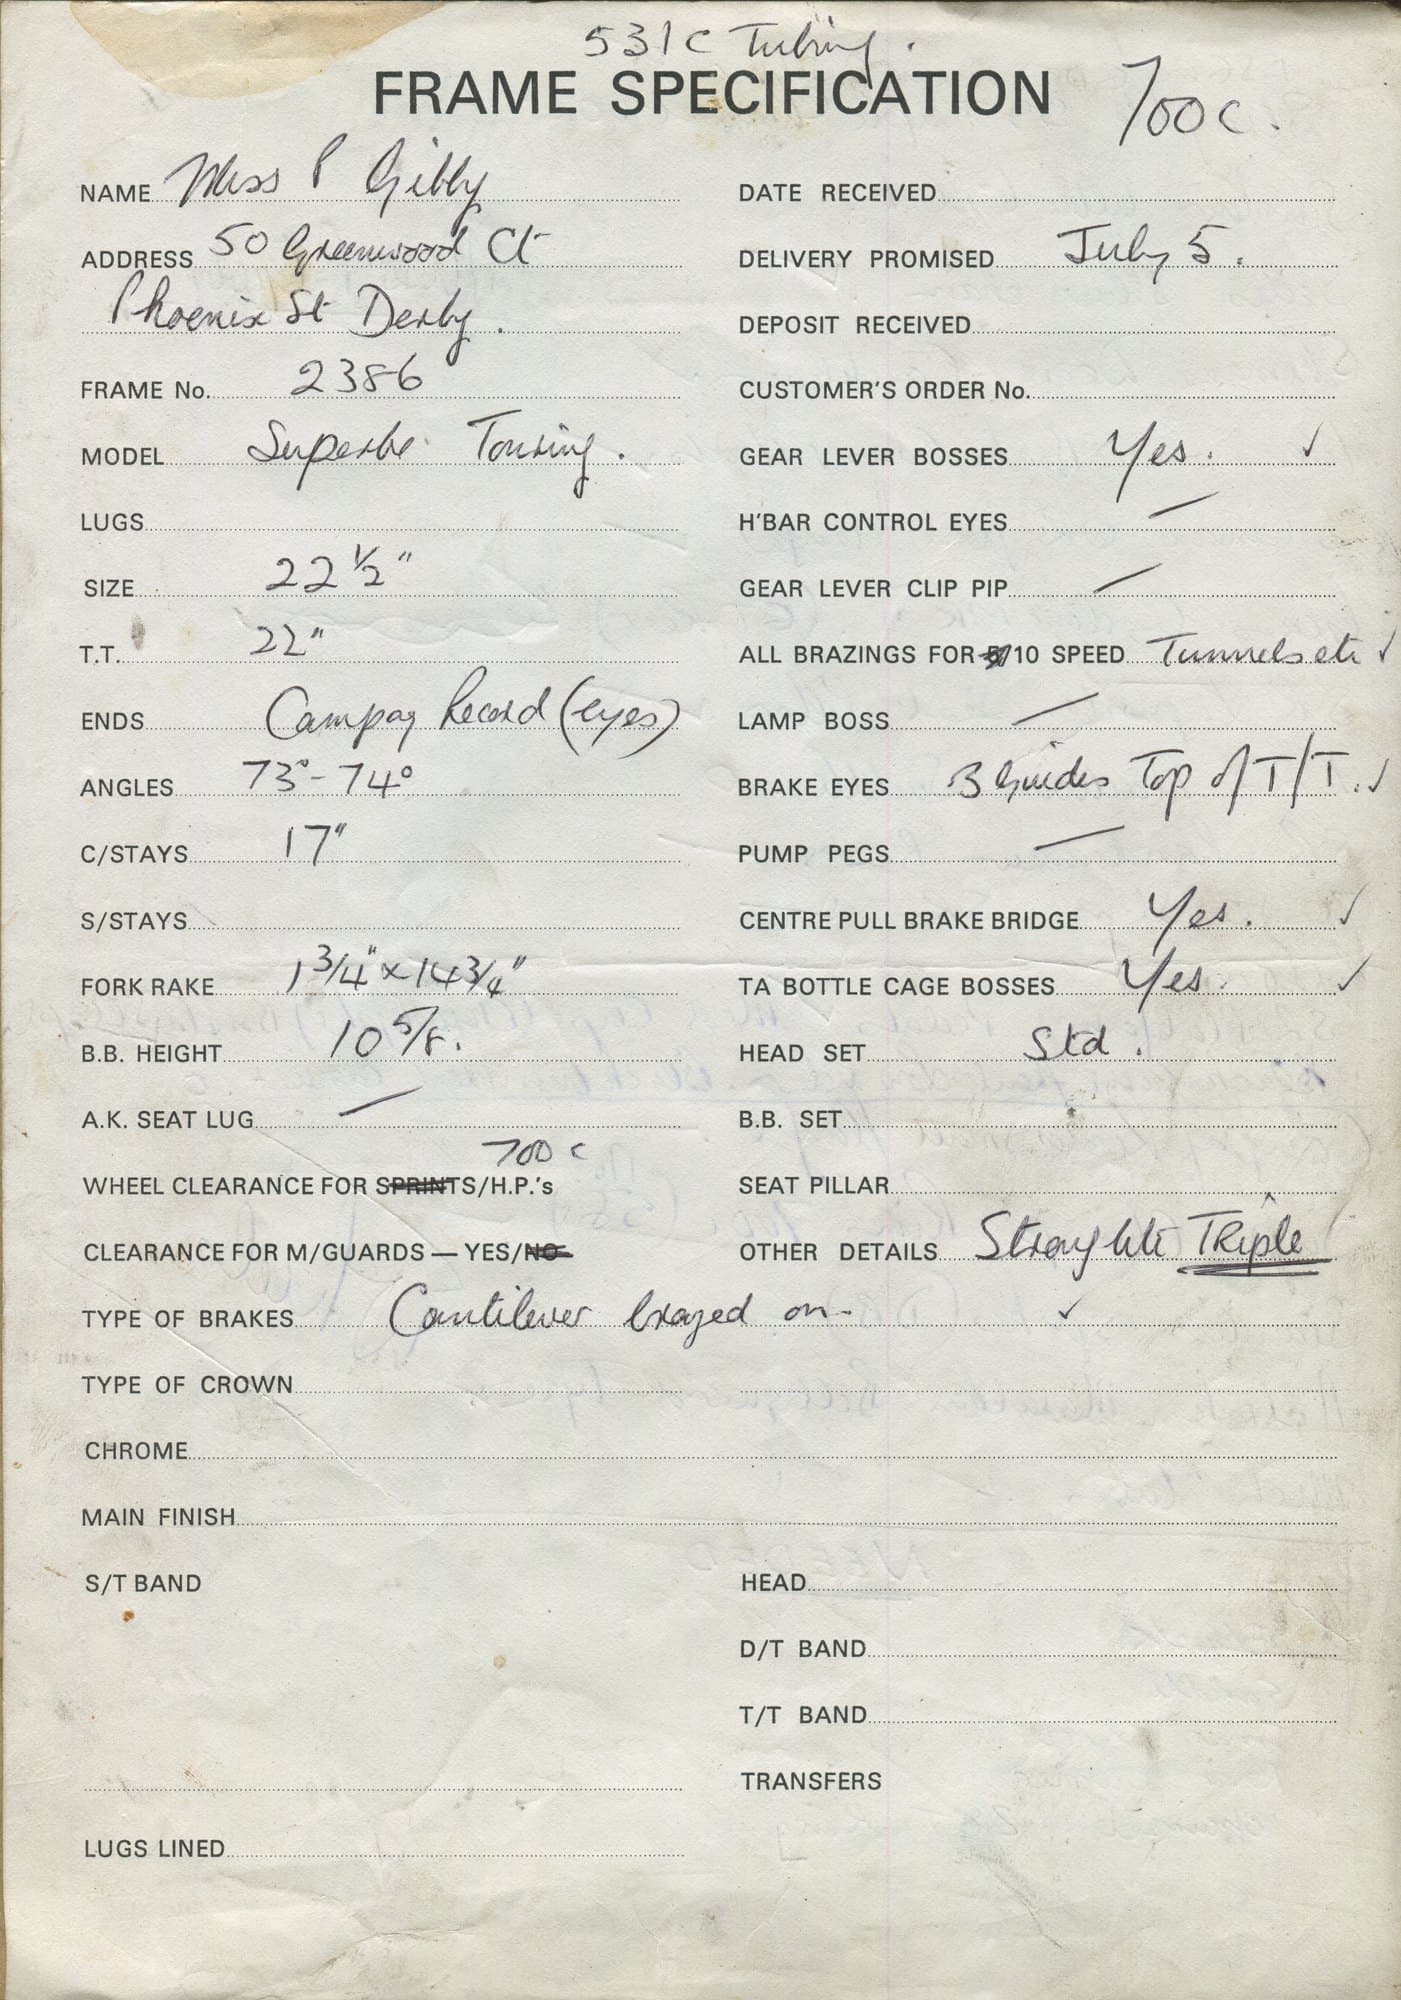 531c Tubing.
FRAME SPECIFICATION
700c.
NAME Miss P Gibby
ADDRESS 50 Greenwood Ct
Phoenix St Derby.
FRAME No. 2386
MODEL Superbe Touring.
LUGS
SIZE 22 1/2"
T.T. 22"
ENDS Campag Record (eyes)
ANGLES 73° - 74°
C/STAYS 17"
S/STAYS
FORK RAKE 1 3/4" x 14 3/4"
B.B. HEIGHT 10 5/8.
A.K. SEAT LUG —
700c
WHEEL CLEARANCE FOR SPRINTS/H.P.'s
CLEARANCE FOR M/GUARDS — YES/NO
TYPE OF BRAKES Cantilever brazed on - ✓
TYPE OF CROWN
CHROME
MAIN FINISH
S/T BAND
LUGS LINED
DATE RECEIVED
DELIVERY PROMISED July 5.
DEPOSIT RECEIVED
CUSTOMER'S ORDER No.
GEAR LEVER BOSSES Yes. ✓
H'BAR CONTROL EYES —
GEAR LEVER CLIP PIP —
ALL BRAZINGS FOR 5/10 SPEED Tunnels etc ✓
LAMP BOSS —
BRAKE EYES 3 Guides Top of T/T. ✓
PUMP PEGS —
CENTRE PULL BRAKE BRIDGE Yes. ✓
TA BOTTLE CAGE BOSSES Yes. ✓
HEAD SET Std.
B.B. SET
SEAT PILLAR
OTHER DETAILS TRiple
HEAD
D/T BAND
T/T BAND
TRANSFERS